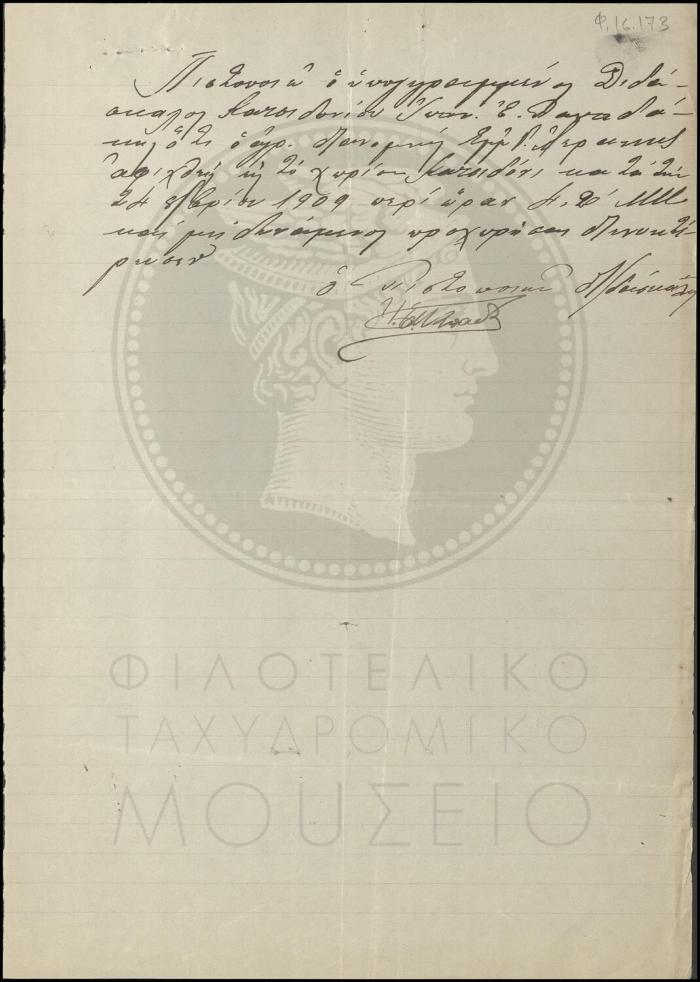 Φ.16.173
Πιστοποιῶ ὁ ὑπογεγραμμένος Διδά-
σκαλος Κατσιδονίου
ὅτι ὁ ἀγρ. διανομεὺς Ἐμμ.
ἀφίχθη εἰς τὸ χωρίον Κατσιδόνι κατὰ τὴν
24 9βρίου 1909 περὶ ὥραν 4. Μ.Μ.
καὶ μὴ δυνάμενος προχωρῆσαι διενυκτέ-
ρευσεν
ὁ πιστοποιῶν Διδάσκαλος
ΦΙΛΟΤΕΛΙΚΟ
ΤΑΧΥΔΡΟΜΙΚΟ
ΜΟΥΣΕΙΟ